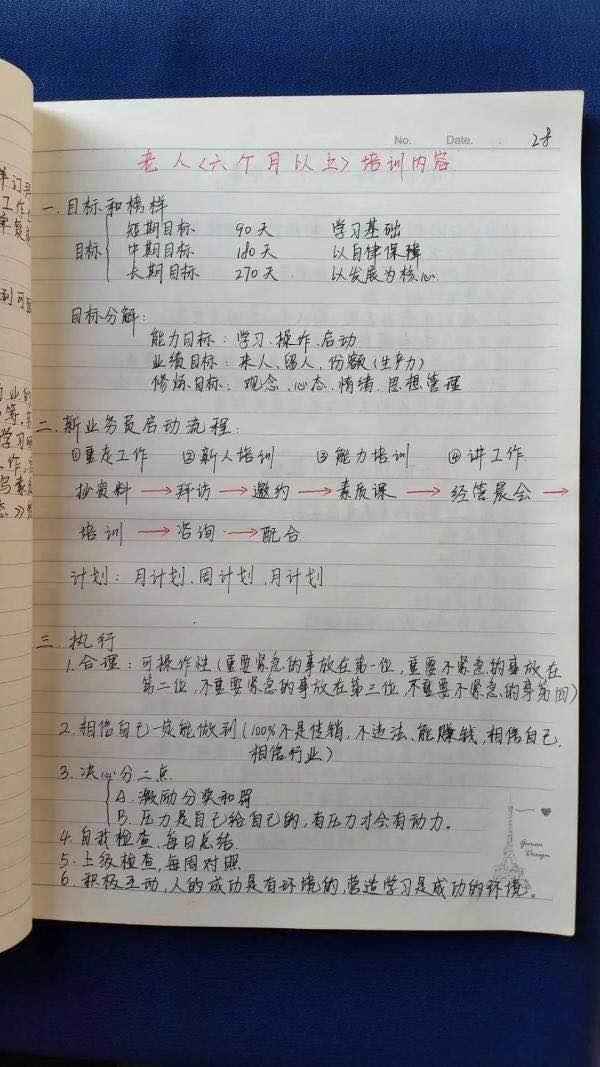 No. Date. 28
老人<六个月以上>培训内容
一.目标和榜样
短期目标 90天 学习基础
目标 中期目标 180天 以自律保障
长期目标 270天 以发展为核心
目标分解:
能力目标:学习、操作、启动
业绩目标:来人、留人、份额(生产力)
修炼目标:观念、心态、情绪、思想管理
二.新业务员启动流程:
①重走工作 ②新人培训 ③能力培训 ④讲工作
抄资料→拜访→邀约→素质课→经管晨会→
培训→咨询→配合
计划:月计划、周计划、月计划
三.执行
1.合理:可操作性(重要紧急的事放在第一位,重要不紧急的事放在
第二位,不重要紧急的事放在第三位,不重要不紧急的事第四)
2.相信自己一定能做到(100%不是传销,不违法、能赚钱,相信自己,
相信行业)
3.决心分二点
A.激励分奖和罚
B.压力是自己给自己的,有压力才会有动力。
4.自我检查、每日总结.
5.上级检查,每周对照
6.积极互动,人的成功是有环境的,营造学习是成功的环境。
Design